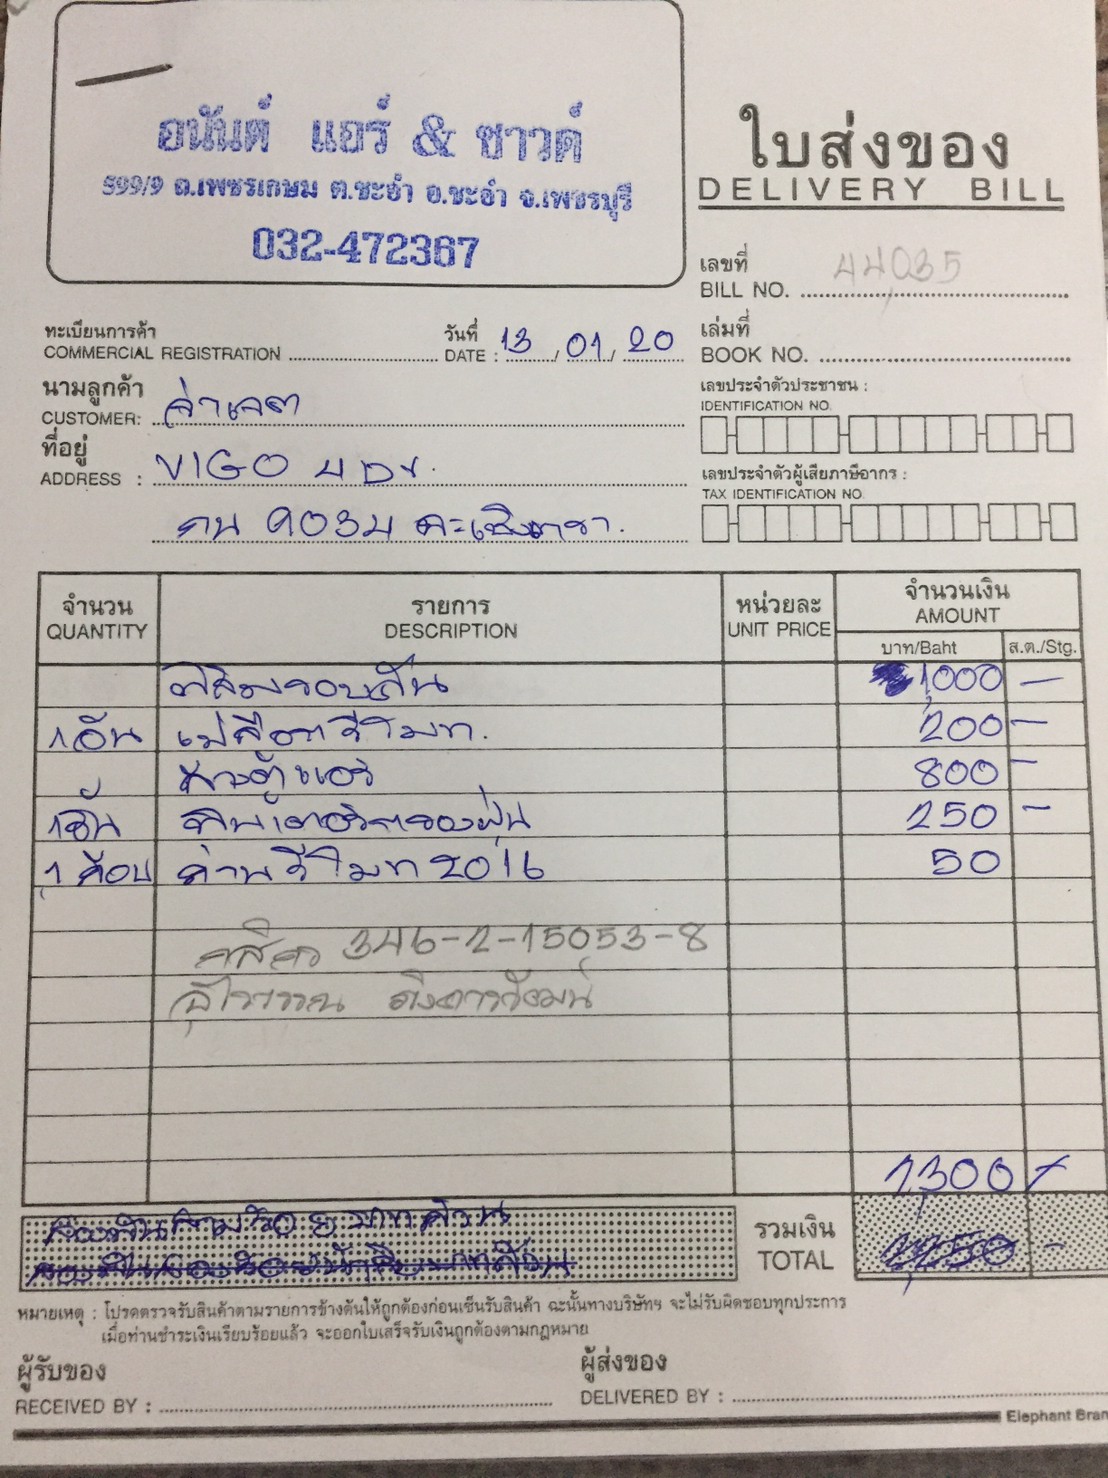 อนันต์ แอร์ & ซาวด์
599/9 ถ.เพชรเกษม ต.ชะอำ อ.ชะอำ จ.เพชรบุรี
032-472367
ใบส่งของ
DELIVERY BILL
เลขที่
BILL NO. 44035
ทะเบียนการค้า
COMMERCIAL REGISTRATION
วันที่
DATE : 13 / 01 / 20
เล่มที่
BOOK NO.
นามลูกค้า
CUSTOMER:
เลขประจำตัวประชาชน :
IDENTIFICATION NO.
ที่อยู่
ADDRESS : VIGO 4 Dr.
เลขประจำตัวผู้เสียภาษีอากร :
TAX IDENTIFICATION NO.
ฉะเชิงเทรา.
จำนวน รายการ หน่วยละ จำนวนเงิน
QUANTITY DESCRIPTION UNIT PRICE AMOUNT
บาท/Baht ส.ต./Stg.
ฟิล์มรอบคัน 1,000 -
1 อัน เปลือกรีโมท. 200 -
แอร์ 800 -
1 อัน 250 -
1 ก้อน ถ่านรีโมท 2016 50
กสิกร 346-2-15053-8
2,300 -
สองพันสามร้อยบาทถ้วน
รวมเงิน
TOTAL 2,250 -
หมายเหตุ : โปรดตรวจรับสินค้าตามรายการข้างต้นให้ถูกต้องก่อนเซ็นรับสินค้า ฉะนั้นทางบริษัทฯ จะไม่รับผิดชอบทุกประการ
เมื่อท่านชำระเงินเรียบร้อยแล้ว จะออกใบเสร็จรับเงินถูกต้องตามกฎหมาย
ผู้รับของ
RECEIVED BY :
ผู้ส่งของ
DELIVERED BY :
Elephant Bran